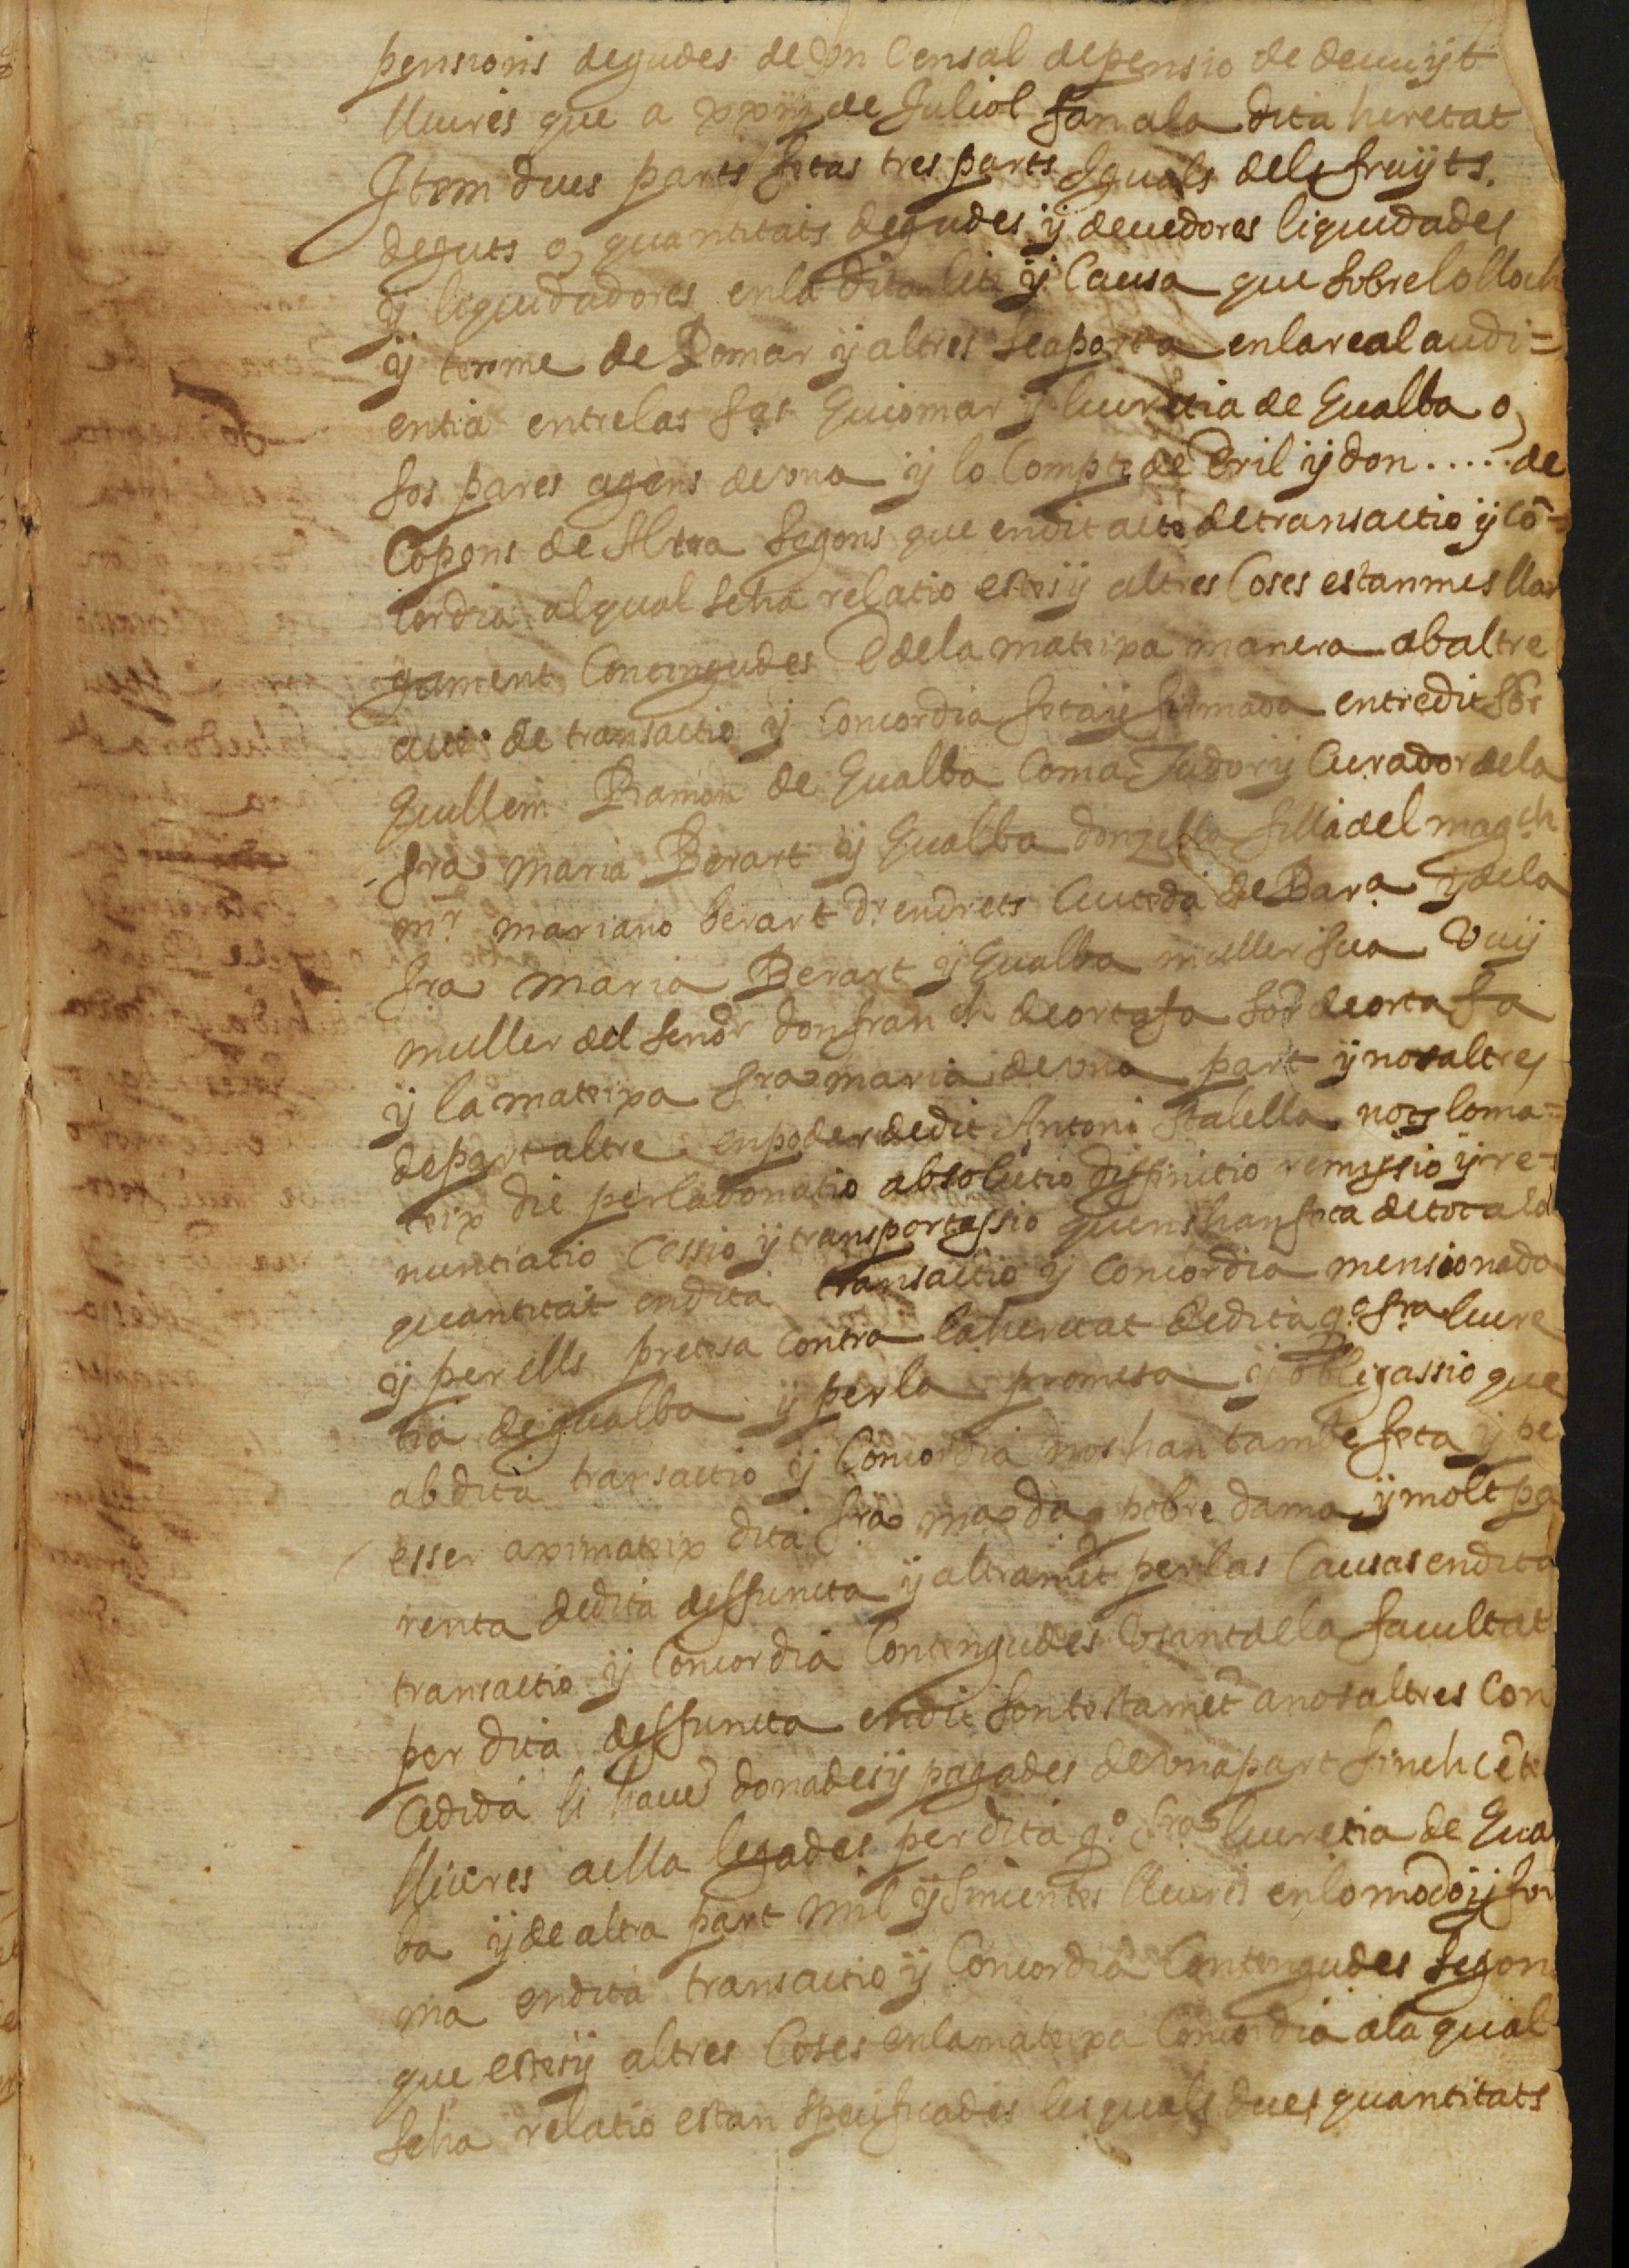 pensions degudes de vn Censal de pensio de deuuyt
lliures que a xxiij de Juliol fan ala dita heretat
Item dues parts fetas tres parts yguals dels fruyts
deguts o, quantitats degudes y deuedores liquidades
y liquidadores en la dita lite y Causa que sobre lo lloch
y terme de Pomar y altres se aporta en la real audi=
entia entre las sras Guiomar y lucretia de Gualba o,
sos pares agens de vna y lo Compte de Eril y don ..... de
Copons de Altra segons que en dit acte de transactio y cõ=
cordia al qual se ha relatio estes y altres Coses estan mes llar
gament Contengudes E de la mateixa manera ab altre
acte de transactio y Concordia feta y firmada entre dit sor
Guillem Ramon de Gualba Com a Tudor y Curador de la
sra maria Berart y Gualba donzella filla del magch
mr mariano berart dr en drets Ciutedà de Bara y de la
sra maria Berart y Gualba muller sua Vuy
muller del senor don franch de ortafa sor de ortafa
y la mateixa sra maria de vna part y nosaltres
de part altre en poder de dit Antoni Stalella nots lo ma=
teix die per la donatio absolutio diffinitio remissio y re=
nuntiatio Cessio y transportassio quens han feta de tota la
quantitat en dita transactio y Concordia mensionada
y per ells pretesa contra la heretat de dita qo sra lucre
tia de gualba y per la promesa y obligassio que
ab dita transactio y Concordia nos han tambe feta y pe
esser aximateix dita sra ma da pobre dama y molt pa
renta de dita deffuncta y altramẽt per las Causas en dita
transactio y Concordia Contengudes Vsant de la facultat
per dita deffuncta en dit son testamẽt a nosaltres Con
Cedida li hauẽ donades y pagades de vna part sinch cẽts
lliures a ella legades per dita qo sra lucretia de Gual
ba y de altra part mil y sincentes lliures en lo modo y for
ma en dita transactio y Concordia Contengudes segon
que estes y altres Coses en la mateixa Concordia a la qual
se ha relatio estan specificades les quals dues quantitats